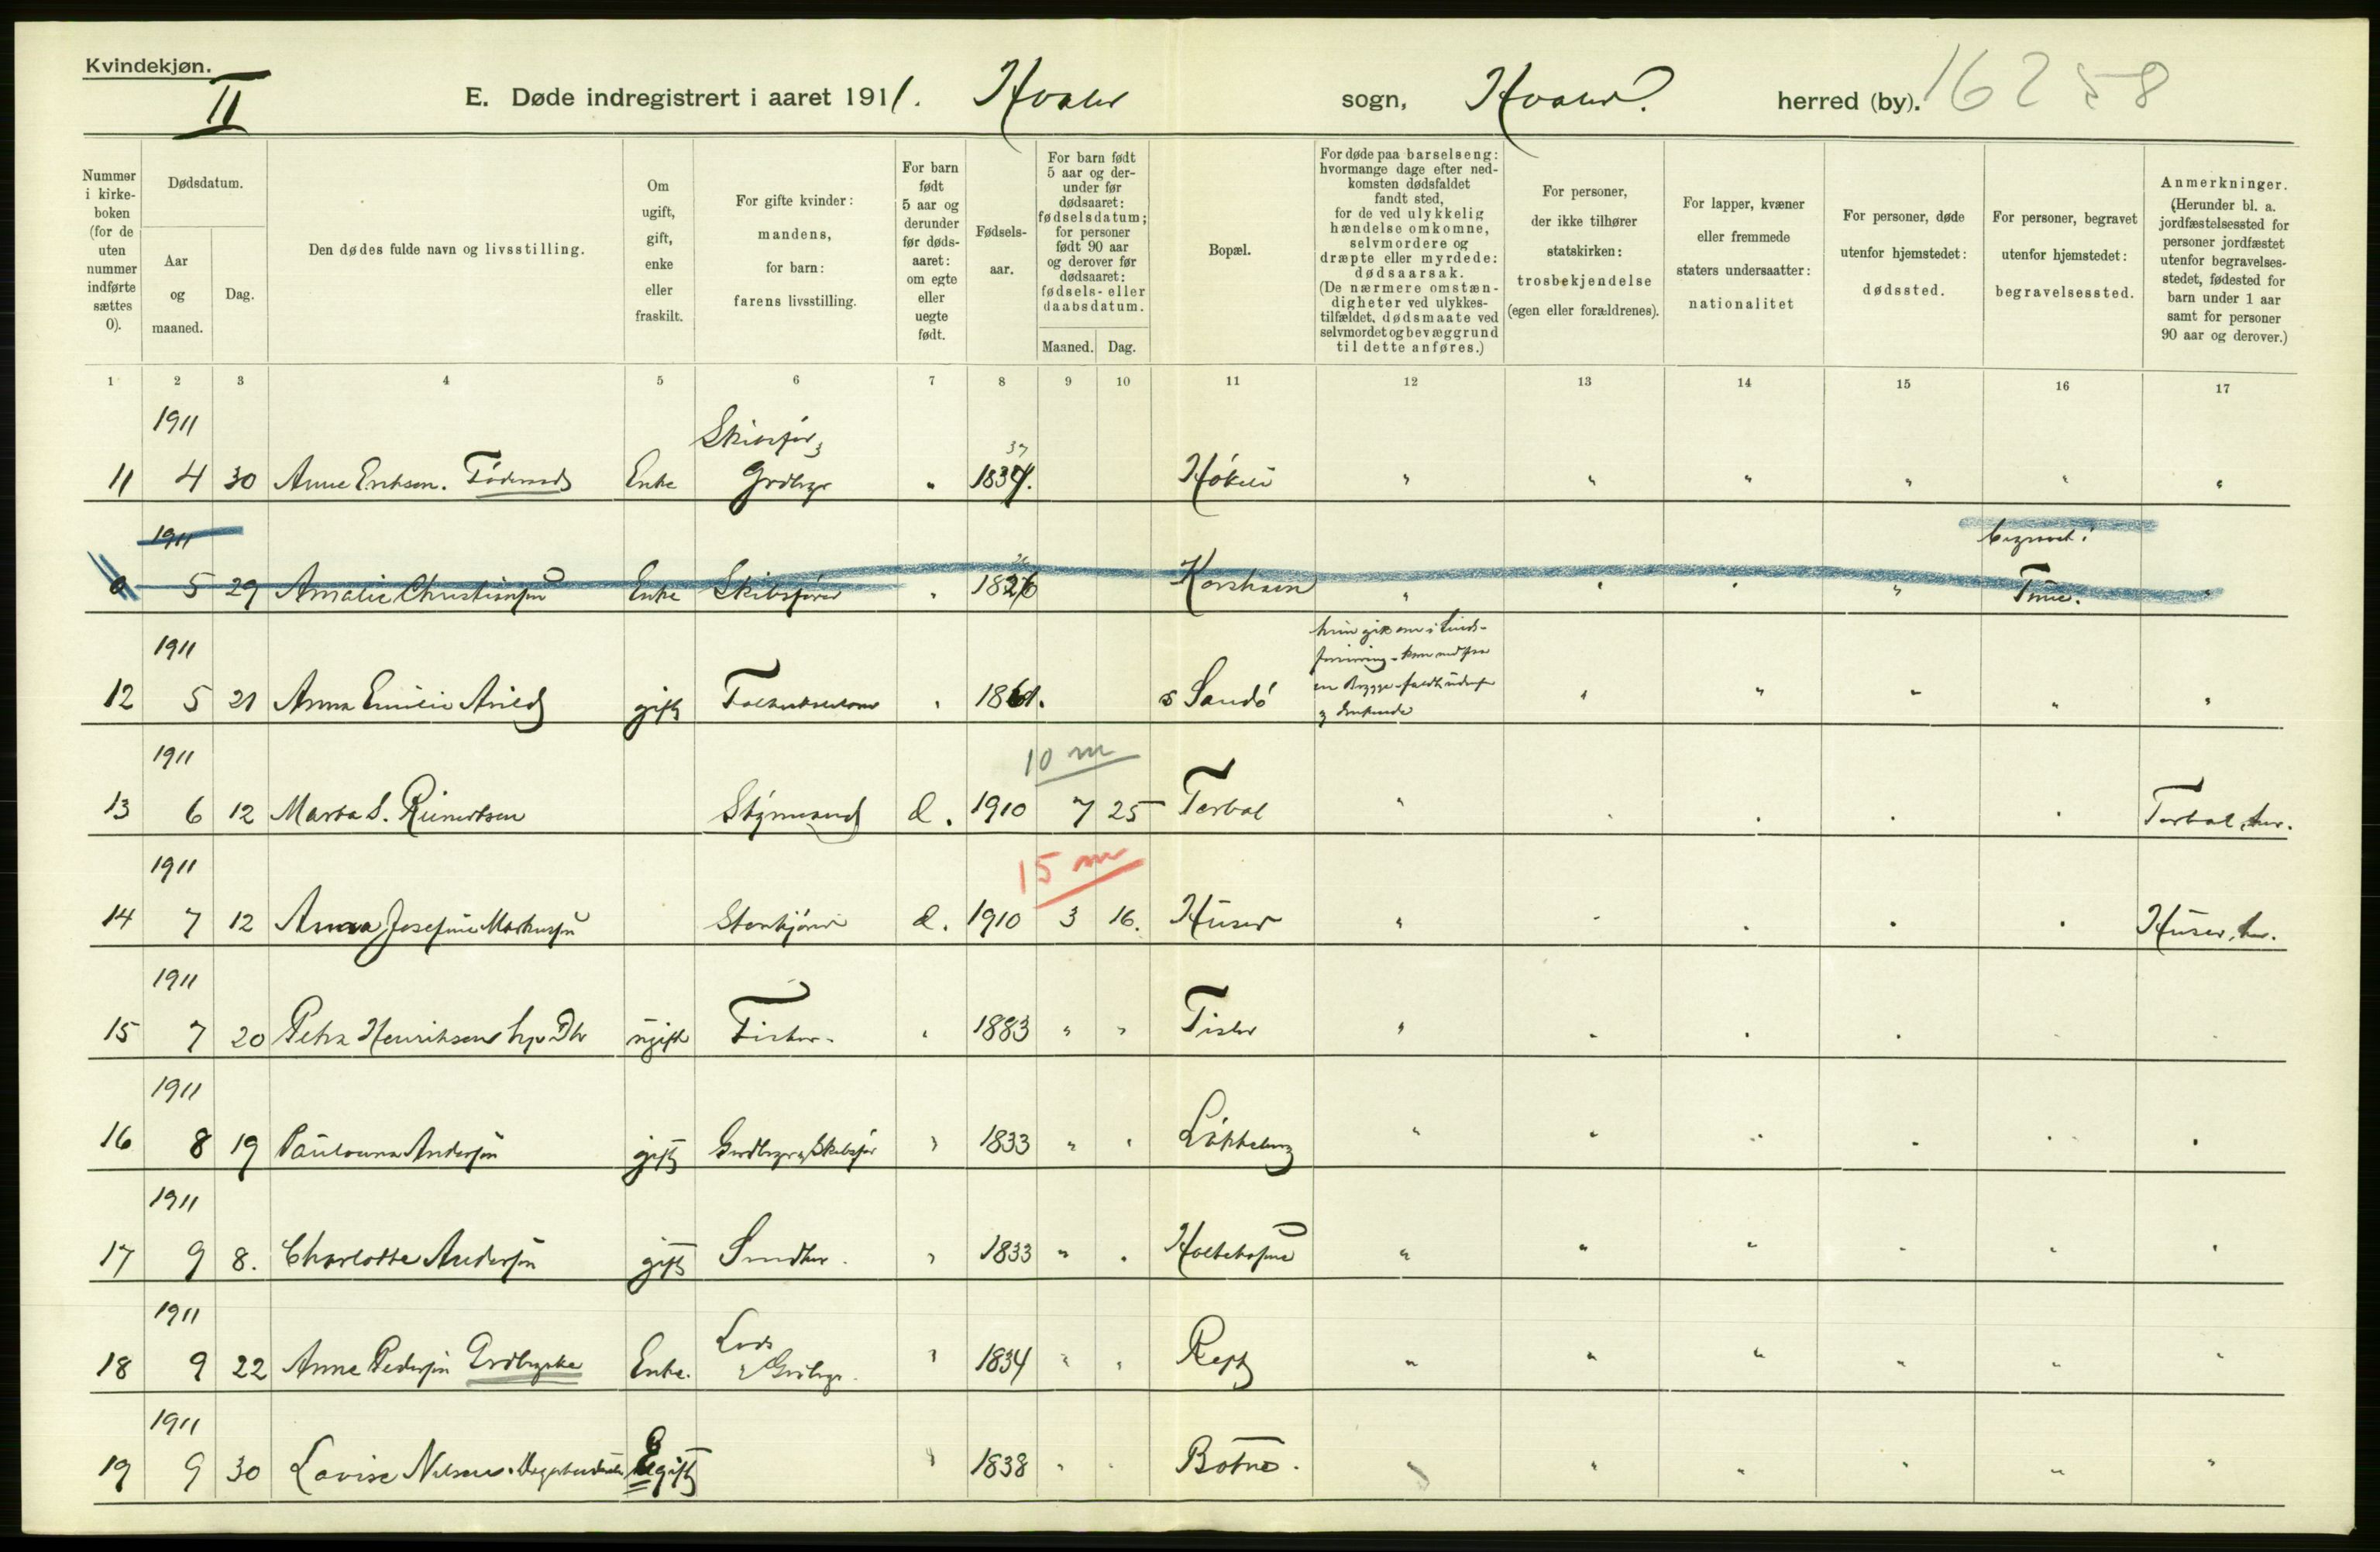 Kvindekjøn.
II
E. Døde indregistrert i aaret 1911. Hvaler sogn, Hvaler herred (by). 16258
Nummer i kirke-boken (for de uten nummer indførte sættes 0).
Dødsdatum.
Aar og maaned.
Dag.
Den dødes fulde navn og livsstilling.
Om ugift, gift, enke eller fraskilt.
For gifte kvinder: mandens, for barn: farens livsstilling.
For barn født 5 aar og derunder før døds-aaret: om egte eller uegte født.
Fødsels-aar.
For barn født 5 aar og der-under før dødsaaret: fødselsdatum; for personer født 90 aar og derover før dødsaaret: fødsels- eller daabsdatum.
Maaned. Dag.
Bopæl.
For døde paa barselseng: hvormange dage efter ned-komsten dødsfaldet fandt sted, for de ved ulykkelig hændelse omkomne, selvmordere og dræpte eller myrdede: dødsaarsak. (De nærmere omstæn-digheter ved ulykkes-tilfældet, dødsmaate ved selvmordet og bevæggrund til dette anføres.)
For personer, der ikke tilhører statskirken: trosbekjendelse (egen eller forældrenes).
For lapper, kvæner eller fremmede staters undersaatter: nationalitet
For personer, døde utenfor hjemstedet: dødssted.
For personer, begravet utenfor hjemstedet: begravelsessted.
Anmerkninger. (Herunder bl. a. jordfæstelsessted for personer jordfæstet utenfor begravelses-stedet, fødested for barn under 1 aar samt for personer 90 aar og derover.)
1 2 3 4 5 6 7 8 9 10 11 12 13 14 15 16 17
1911 Skibsfør
11 4 30 Anne Eriksen. Enke Grdbrgr " 1834. " " " " " "
1911 begravet i
0 5 29 Amalie Christiansen Enke Skibsfører " 1826 Korshavn " " " " "
1911
12 5 21 Anna Emilie Arild gift 1861. Sandø " " " " "
1911 10 m
13 6 12 Marta S. Reinertsen Styrmand 1910 7 25 " Hvr.
1911 15 m
14 7 12 Anna Josefine Markussen 1910 3 16. Huser " Huser, Hvr.
1911
15 7 20 Petra Henriksen ugift Fisker. " 1883 " " Tisler "
1911
16 8 19 Paulowna Andersen gift Grdbrgr, Skibsfør " 1833 " " " "
1911
17 9 8. Charlotte Andersen gift " 1833 " " " " " " " "
1911 Lods
18 9 22 Anne Pedersen Enke. Grdbrgr. " 1834 " " " " " " " "
1911
19 9 30 Lovise Nilsen Ugift " 1838 " " Botne. " " " " " "